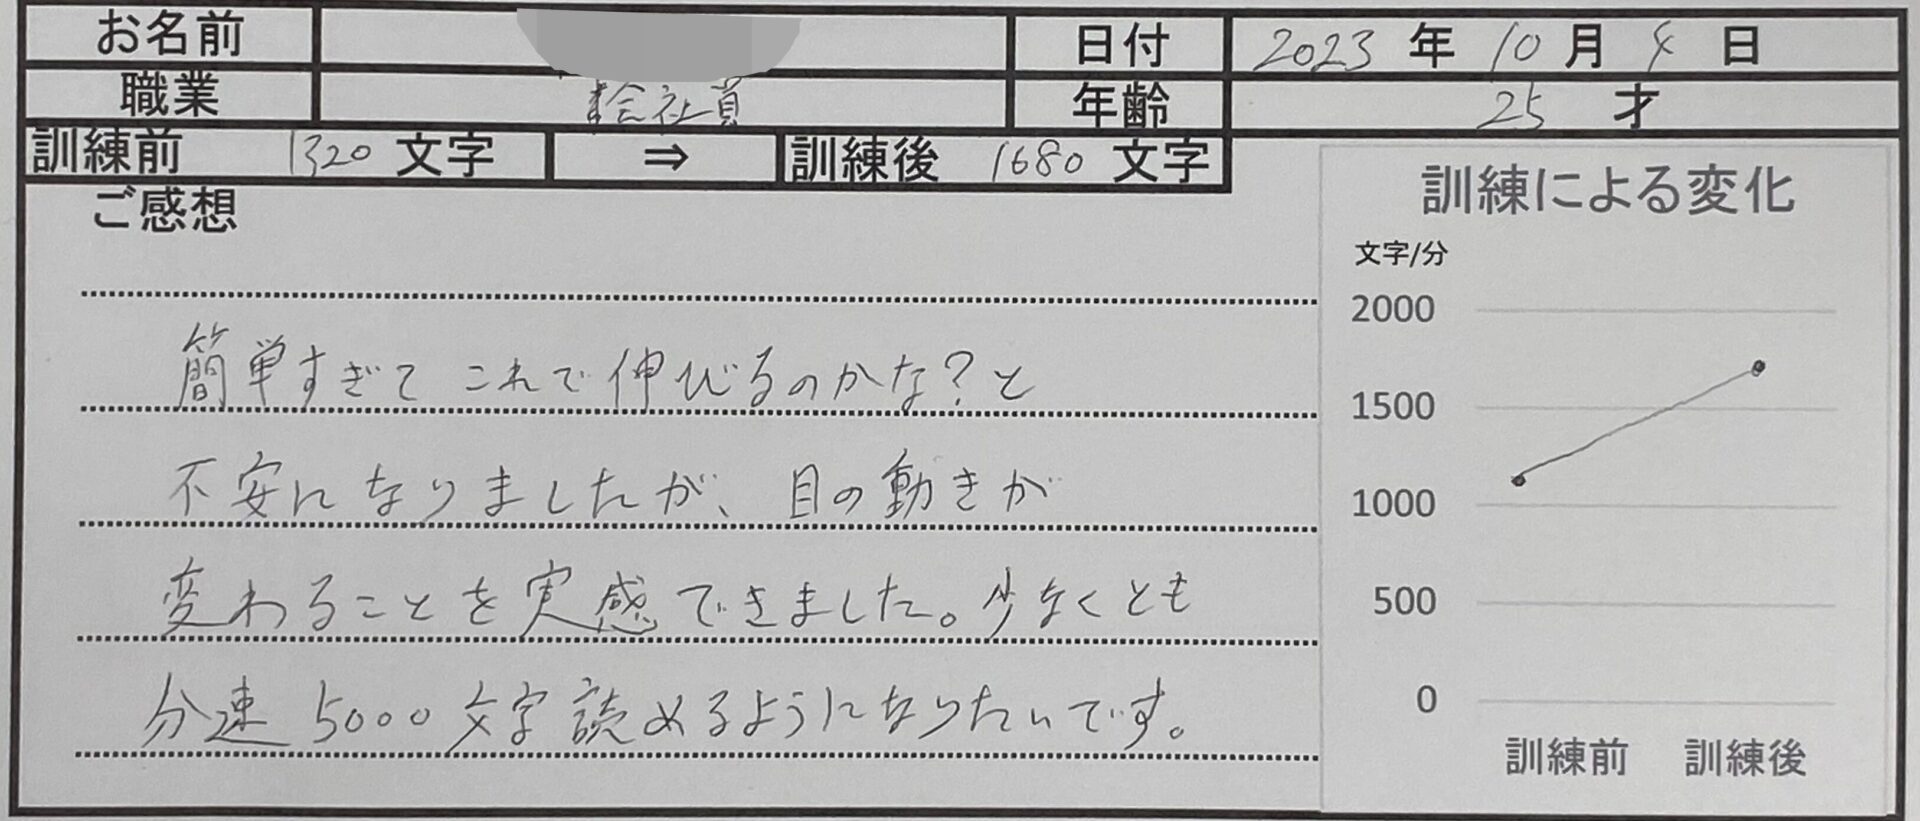 お名前 日付 2023 年 10 月 4 日
職業 会社員 年齢 25 才
訓練前 1320 文字 ⇒ 訓練後 1680 文字
ご感想
簡単すぎて これで伸びるのかな?と
不安になりましたが、目の動きが
変わることを実感できました。少なくとも
分速 5000 文字読めるようになりたいです。
訓練による変化
文字/分
2000
1500
1000
500
0
訓練前 訓練後